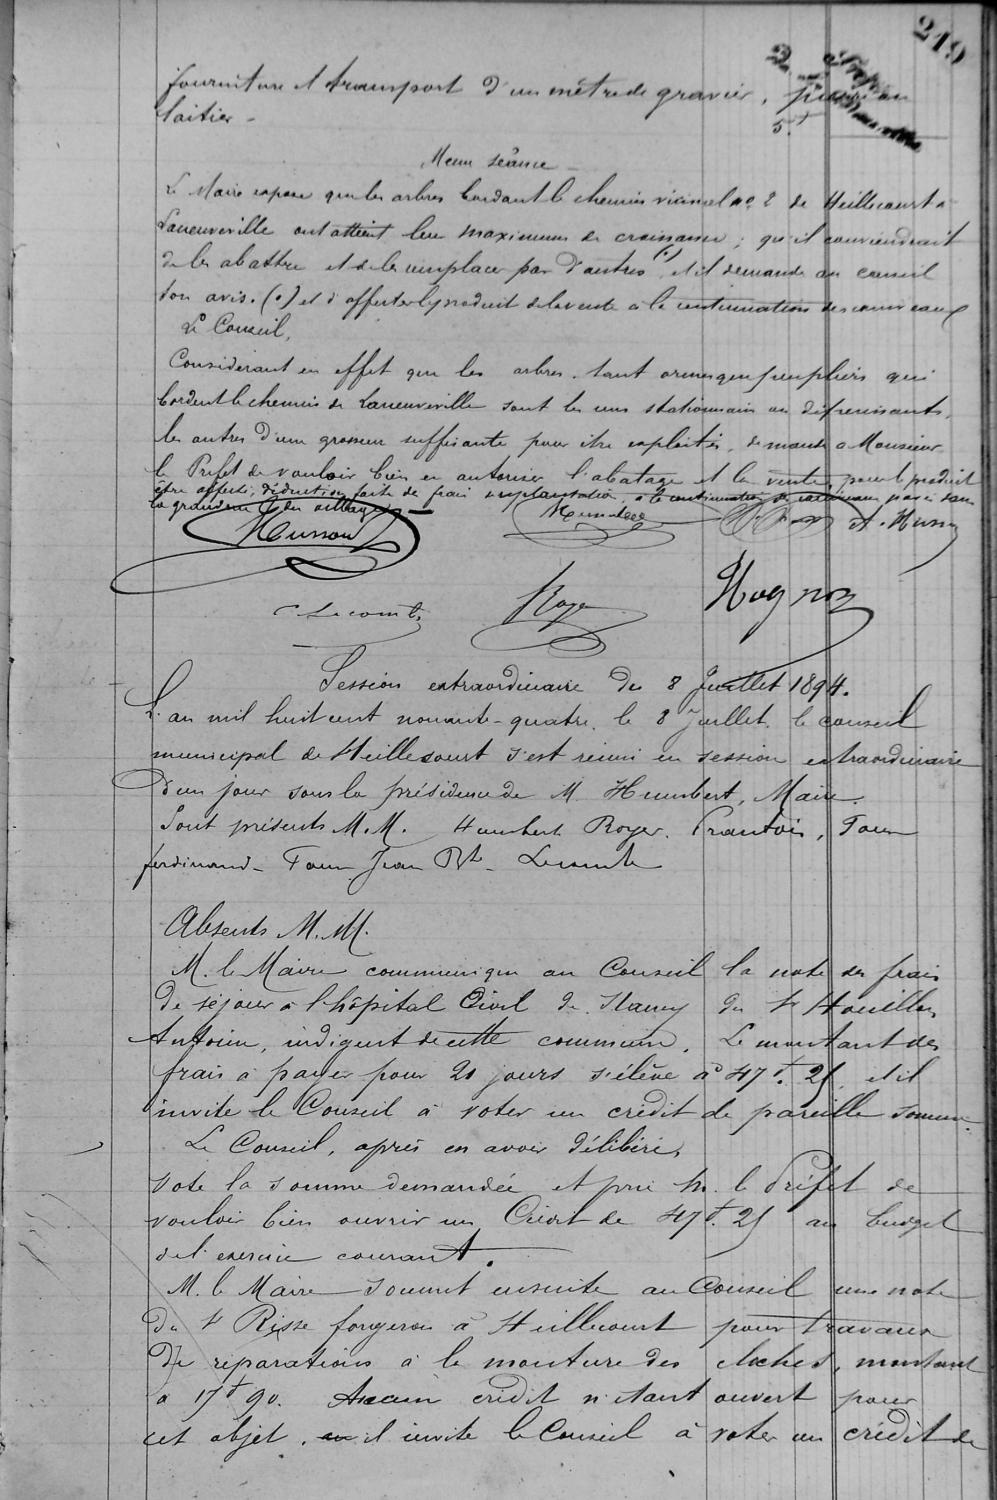 219
fourniture et transport d'un mètre de gravier, pierre ou
laitier -
5f
Même séance -
Le Maire expose que les arbres bordant le chemin vicinal no 2 de Heillecourt à
Laneuveville ont atteint leur maximum de croissance ; qu'il conviendrait
de les abattre et de les remplacer par d'autres (.) et il demande au conseil
son avis. (.) et d'affecter le produit de la vente à la continuation des caniveaux
Le Conseil,
Considérant en effet que les arbres tant ormes que peupliers qui
bordent le chemin de Laneuveville sont les uns stationnaires ou dépérissants,
les autres d'une grosseur suffisante pour être exploités, demande à Monsieur
le Préfet de vouloir bien en autoriser l'abatage et la vente, pour le produit
être affecté, déduction faite de frais de replantation, à la continuation de caniveaux pavés dans
la grande rue du village -
Husson A. Husson
Lecomte Roye Hognon
Session extraordinaire du 8 Juillet 1894.
L'an mil huit cent nonante-quatre, le 8 Juillet, le conseil
municipal de Heillecourt s'est réuni en session extraordinaire
d'un jour sous la présidence de M. Humbert, Maire.
Sont présents M.M. Humbert Royer, François, Tour
ferdinand - Tour Jean Bte - Lecomte
Absents M.M.
M. le Maire communique au Conseil la note des frais
de séjour à l'hôpital Civil de Nancy du Sr Houillon
Antoine, indigent de cette commune. Le montant des
frais à payer pour 21 jours s'élève à 47f. 25, et il
invite le Conseil à voter un crédit de pareille somme.
Le Conseil, après en avoir délibéré,
Vote la somme demandée et prie M. le Préfet de
vouloir bien ouvrir un Crédit de 47f. 25 au budget
de l'exercice courant.
M. le Maire soumet ensuite au Conseil une note
du Sr Risse forgeron à Heillecourt pour travaux
de réparations à la monture des cloches, montant
à 17f 90. Aucun crédit n'étant ouvert pour
cet objet, il invite le Conseil à voter un crédit de